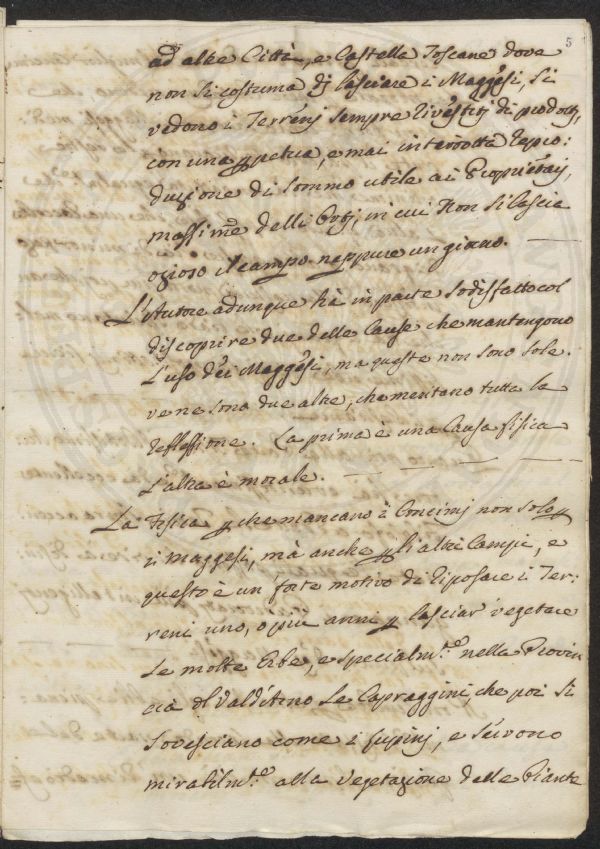 5
ad altre Città, e Castella Toscane dove
non si costuma dj lasciare i Maggesi, si
vedono i Terrenj sempre rivestitj di prodottj,
con una ꝑpetua, e mai interrotta repro:
duzione di sommo utile ai Proprietarj,
massime delli Ortj, in cui non si lascia
ozioso il campo neppure un giorno.
L'Autore adunque hà in parte sodisfatto col
discoprire due delle Cause che mantengono
l'uso dei Maggesi, ma queste non sono sole.
ve ne sono due altre, che meritano tutta la
reflessione. La prima è una Causa fisica
l'altra è morale.
La Fisica ꝑ che mancano i Concimj non solo ꝑ
i Maggesi, mà anche ꝑ li altri Campi, e
questo è un forte motivo di riposare i Ter:
reni uno, o piu anni ꝑ lasciar vegetare
le molte Erbe, e specialm.te nella Provin
cia dl Valdarno le Capraggini, che poi si
sovesciano come i Lupinj, e servono
mirabilm.te alla vegetazione delle Piante